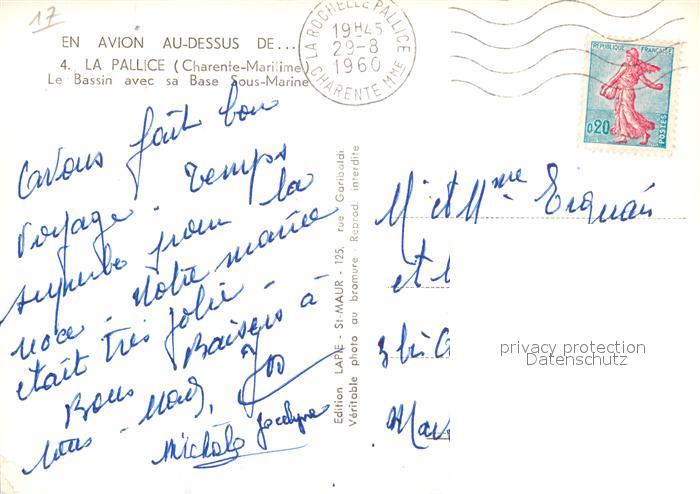 17
EN AVION AU-DESSUS DE...
4. LA PALLICE (Charente-Maritime)
Le Bassin avec sa Base Sous-Marine
LA ROCHELLE PALLICE
19H45
29-8
1960
CHARENTE MME
REPUBLIQUE FRANÇAISE
0,20
POSTES
Avons fait bon
voyage. Temps
superbe pour la
noce. Notre mariée
etait très jolie.
Bons Baisers à
tous. Nous,
Michèle Jocelyne
Edition LAPIE - St-MAUR - 125, rue Garibaldi
Véritable photo au bromure - Reprod. interdite
Mr et Mme
et
3 bis
privacy protection
Datenschutz